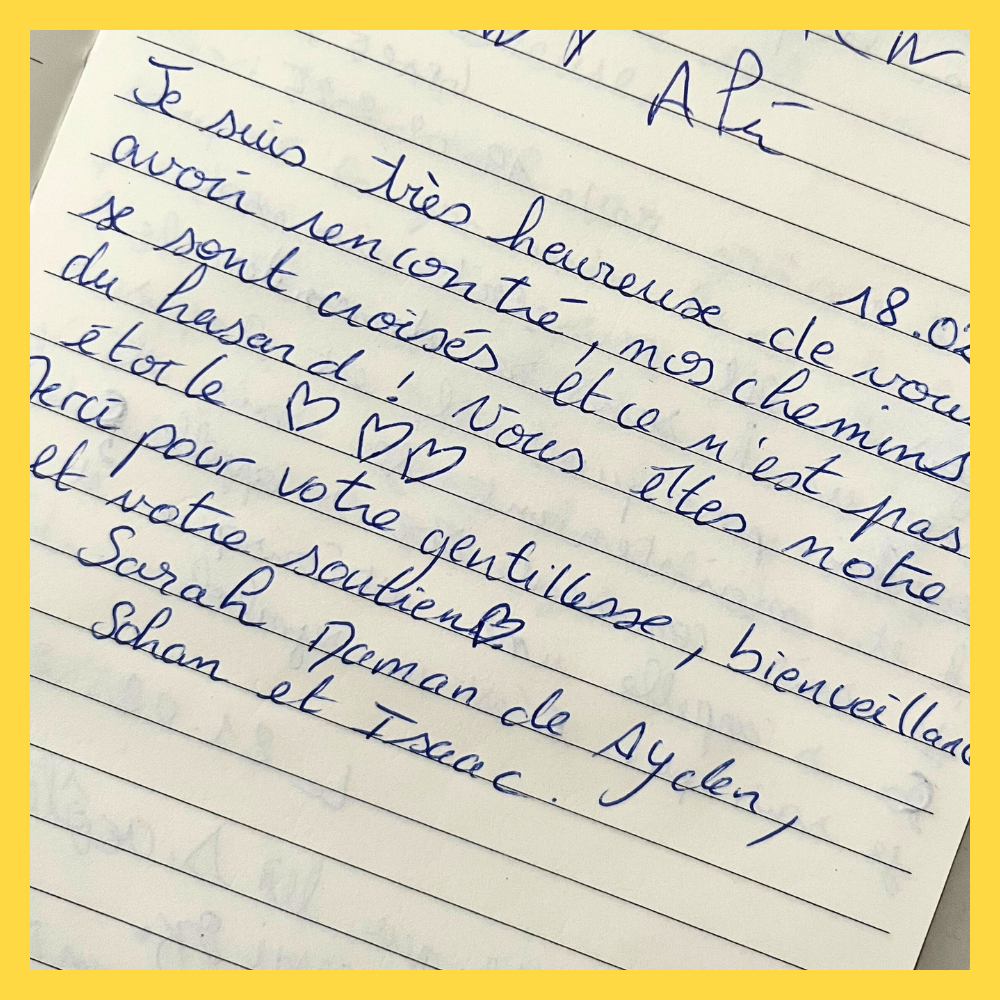 Alï
18.02
Je suis très heureuse de vous
avoir rencontré, nos chemins
se sont croisés et ce n'est pas
du hasard ! Vous êtes notre
étoile ♡ ♡♡
Merci pour votre gentillesse, bienveillanc
et votre soutien♡.
Sarah Maman de Ayden,
Sohan et Isaac.